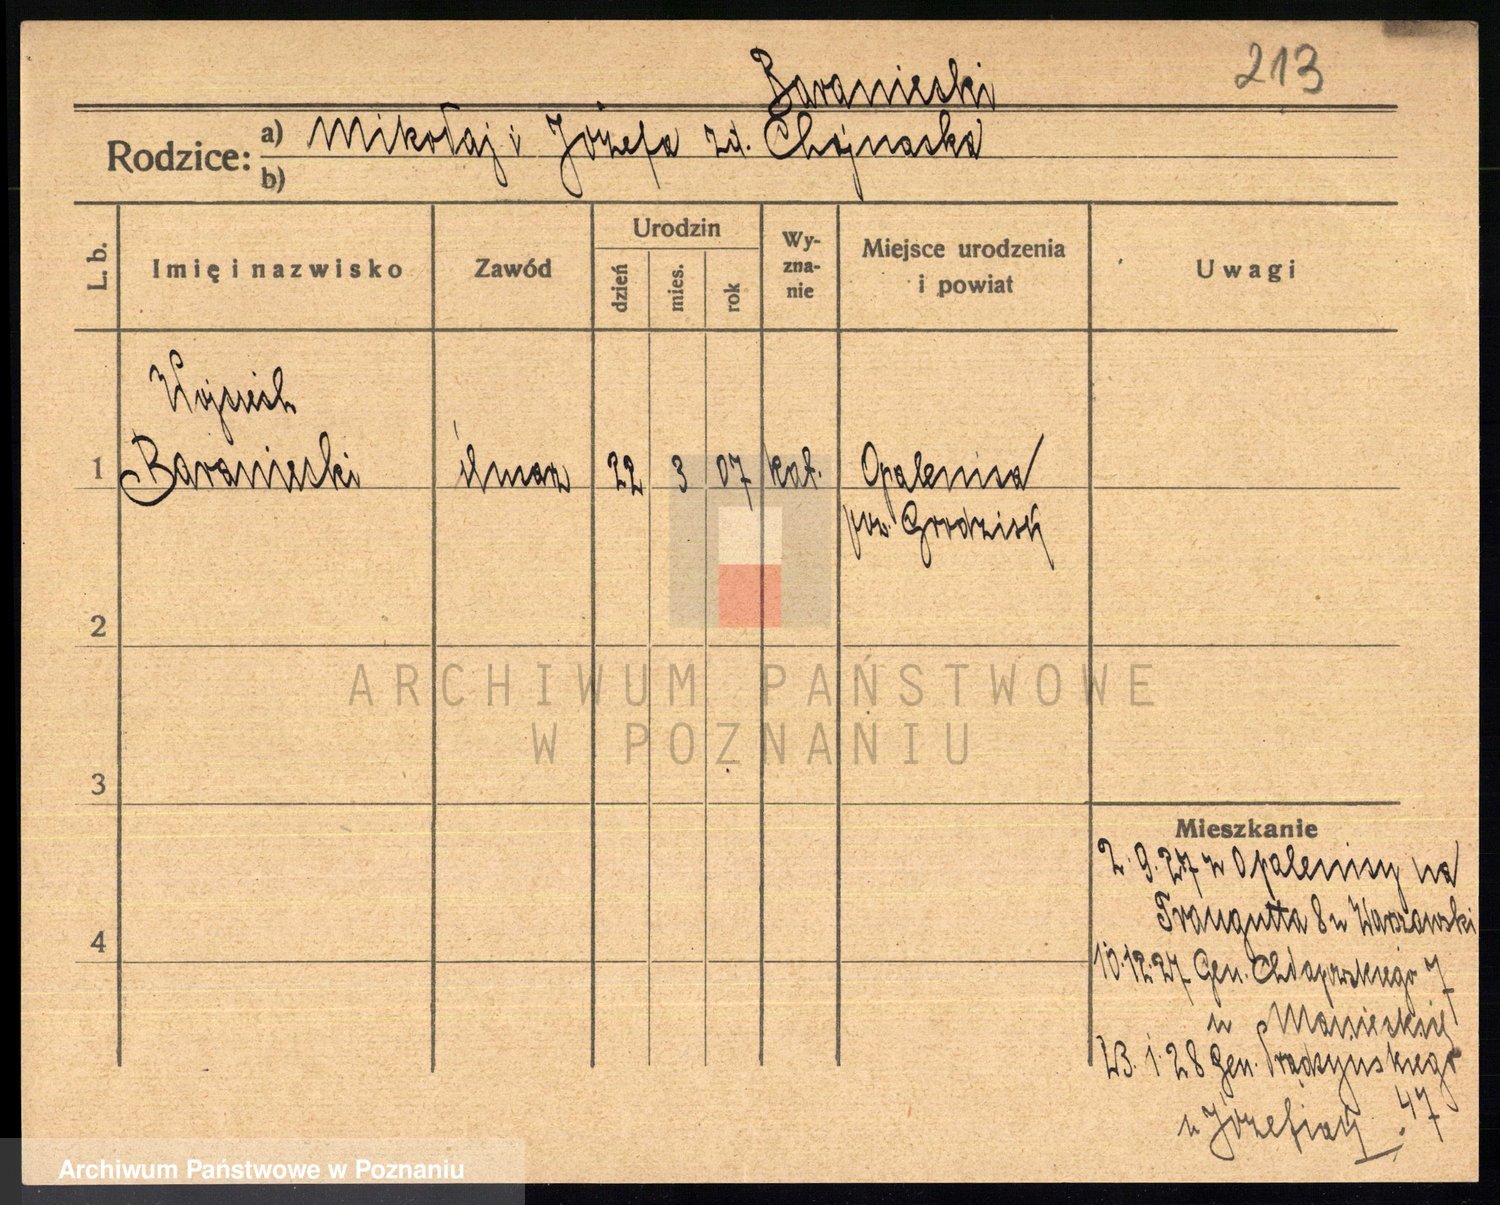 213
Baranieski
Rodzice: a) Mikołaj i Józefa zd. Chojnacka
b)
L. b. Imię i nazwisko Zawód Urodzin dzień mies. rok Wy-zna-nie Miejsce urodzenia i powiat Uwagi
Wojciech
1 Baranieski 22 3 07 kat. Opalenica
pow. Grodzisk
2
ARCHIWUM PAŃSTWOWE
W POZNANIU
3
Mieszkanie
2. 9. 27 z Opalenicy na
4 Traugutta 8 u Warszawski
10.12.27 Gen. Chłapowskiego 7
u
23. 1. 28 Gen. Prądzyńskiego
u 47
Archiwum Państwowe w Poznaniu